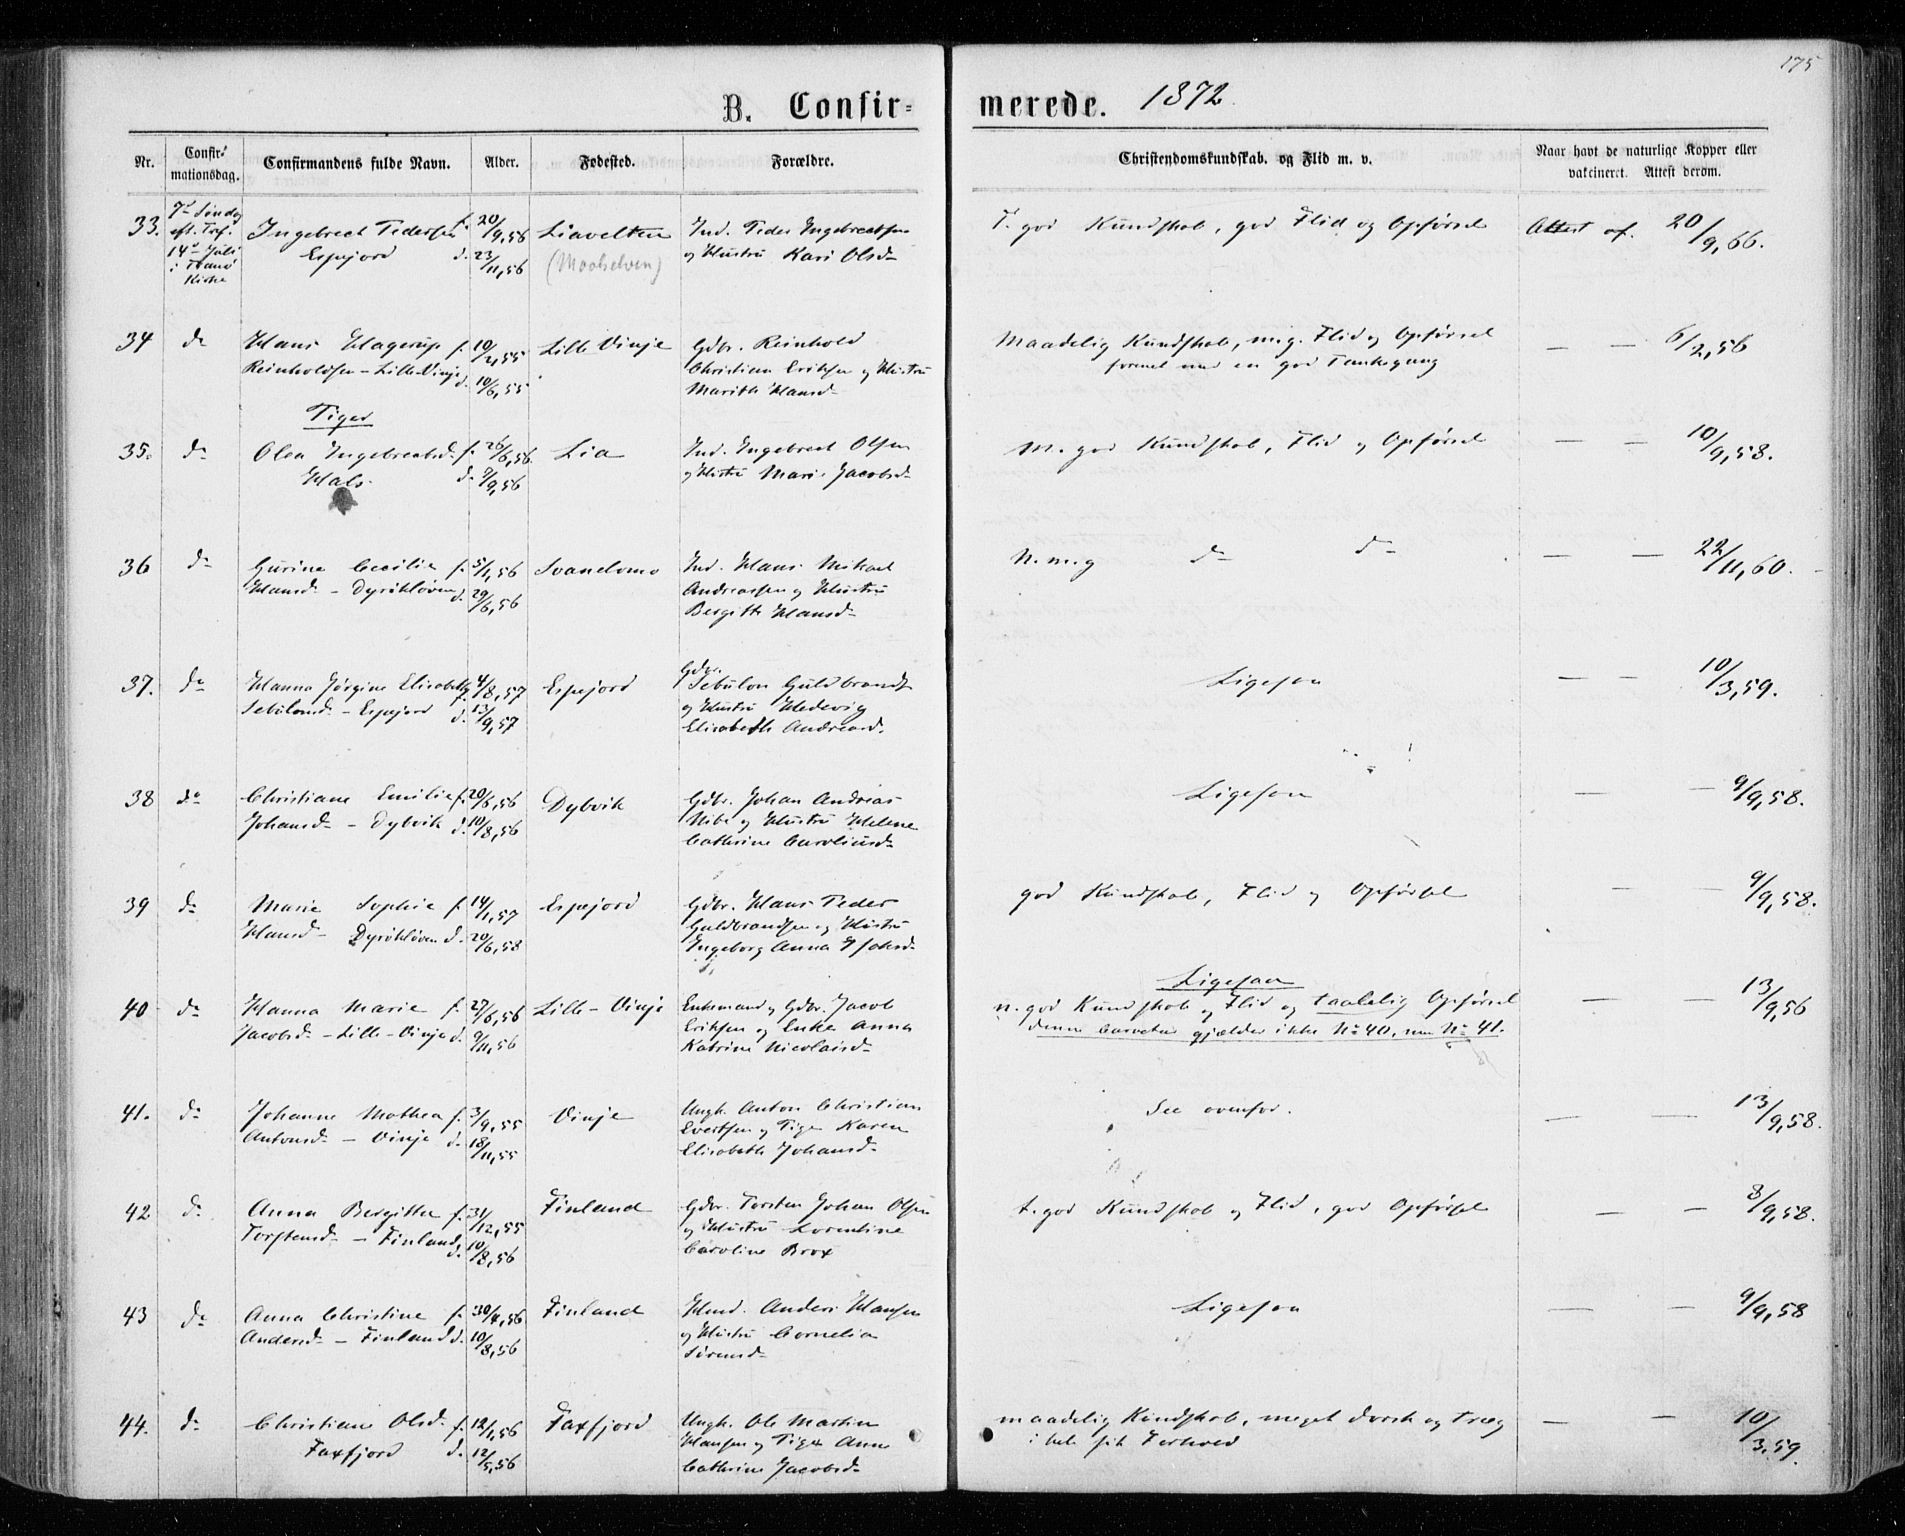 175
B. Confir-
merede. 1872.
Nr.
Confir-
mationsdag.
Confirmandens fulde Navn.
Alder.
Fødested.
Forældre.
Christendomskundskab. og Flid m. v.
Naar havt de naturlige Kopper eller
vakcineret. Attest derom.
33.
7d Søndag
eft. Tref.
14d Juli
i Tranø
Kirke
Ingebrect Pedersen f. 20/9,56
Espejord d. 23/11,56
Liavelten
(Maalselven)
Ind. Peder Ingebrectsen
og Hustru Kari Olsd.
T. god Kundskab, god Flid og Opførsel
Attest af. 20/9,66.
34
do
Hans Hagerup f. 10/2,55
Reinholdsen - Lille-Vinje d. 10/6,55
Lille Vinje
Gdbr. Reinhold
Christian Eriksen og Hustru
Marith Hansd.
Maadelig Kundskab, mg. Flid og Opførsel
forenet med en god Tankegang
— — 6/2,56
Piger
35.
do
Olea Ingebrectsd. f. 26/6,56.
Hals. d. 9/9,56
Lia
Ind. Ingebrect Olsen
og Hustru Mari Jacobsd.
M. god Kundskab, Flid og Opførsel
— — 10/9,58.
36
do
Gurine Cecilie f. 5/1,56
Hansd. - Dyrökloven d. 29/6,56
Svanelvmo
Ind. Hans Mikael
Andreassen og Hustru
Bergitte Hansd.
N. m. g do do
— — 22/11,60.
37.
do
Hanna Jørgine Elisabeth f. 4/8,57
Sebulonsd. - Espejord d. 13/9,57
Espejord
Gdbr.
Sebulon Guldbrands.
og Hustru Hedevig
Elisabeth Andreasd.
Ligesaa
— — 10/3,59.
38
do
Christiane Emilie f. 20/6,56
Johansd. - Dybvik d. 10/8,56
Dybvik
Gdbr. Johan Andreas
og Hustru Helene
Cathrine Caroliusd.
Ligesaa
— — 9/9,58.
39
do
Marie Sophie f. 14/1,57
Hansd. - Dyrökloven d. 20/6,58
Espejord
Gdbr. Hans Peder
Guldbrandsen og Hustru
Ingeborg Anna
god Kundskab, Flid og Opførsel
— — 9/9,58.
40
do
Hanna Marie f. 27/6,56
Jacobsd. - Lille-Vinje d. 9/11,56
Lille-Vinje
Enkemand og Gdbr. Jacob
Eriksen og Enke Anna
Katrine Nicolaisd.
Ligesaa
n. god Kundskab og Flid og taalelig Opførsel
denne Caracter gjælder ikke No 40, men No 41.
— — 13/9,56
41.
do
Johanne Mathea f. 3/9,55
Antonsd. - Vinje d. 18/11,55
Vinje
Ungk. Anton Christian
Evertsen og Pige Karen
Elisabeth Johansd.
See ovenfor.
— — 13/9,58.
42
do
Anna Bergitte f. 31/12,55
Torstensd. - Finland d. 10/8,56
Finland
Gdbr. Torsten Johan Olsen
og Hustru Lorentine
Caroline Brox
t. god Kundskab og Flid, god Opførsel
— — 8/9,58.
43
do
Anna Christine f. 30/4,56
Andersd. - Finland d. 10/8,56
Finland
Hmd. Anders Hansen
og Hustru Cornelia
Sørensd.
Ligesaa
— — 9/9,58
44.
do
Christiane Olsd. f. 12/1,56
Faxfjord d. 12/5,56
Faxfjord
Ungk. Ole Martin
Hansen og Pige Anne
Cathrine Jacobsd.
maadelig Kundskab, meget dorsk og træg
i hele sit Forhold
— — 10/3.59.